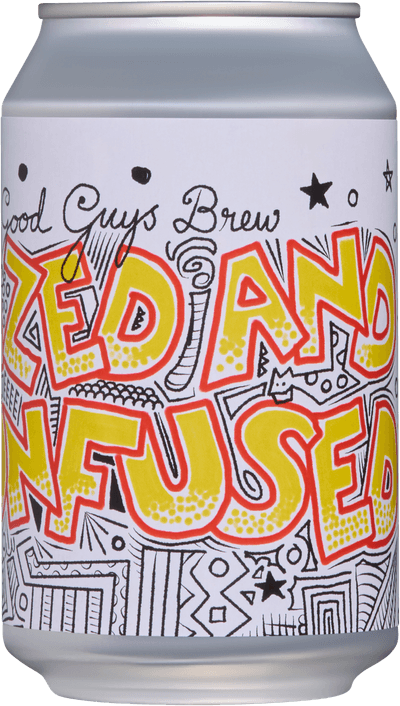 Good Guys Brew
ZED AND
NFUSED